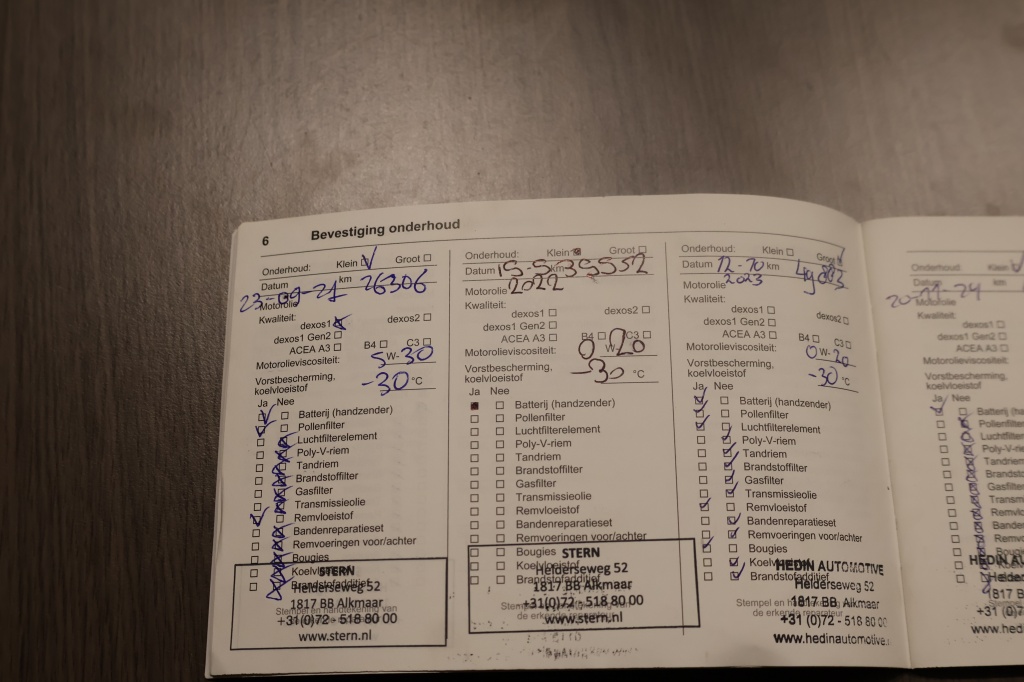 6 Bevestiging onderhoud
Onderhoud: Klein Groot
Datum 23-09-21 km 26306
Motorolie
Kwaliteit:
dexos1 dexos2
dexos1 Gen2
ACEA A3 B4 C3
Motorolieviscositeit: 5 W- 30
Vorstbescherming,
koelvloeistof -30 °C
Ja Nee
Batterij (handzender)
Pollenfilter
Luchtfilterelement
Poly-V-riem
Tandriem
Brandstoffilter
Gasfilter
Transmissieolie
Remvloeistof
Bandenreparatieset
Remvoeringen voor/achter
Bougies
Koelvloeistof
Brandstofadditief
Stempel en handtekening van
STERN
Helderseweg 52
1817 BB Alkmaar
+31(0)72 - 518 80 00
www.stern.nl
Onderhoud: Klein Groot
Datum 15-5- km 35552
Motorolie 2022
Kwaliteit:
dexos1 dexos2
dexos1 Gen2
ACEA A3 B4 C3
Motorolieviscositeit: 0 W- 20
Vorstbescherming,
koelvloeistof -30 °C
Ja Nee
Batterij (handzender)
Pollenfilter
Luchtfilterelement
Poly-V-riem
Tandriem
Brandstoffilter
Gasfilter
Transmissieolie
Remvloeistof
Bandenreparatieset
Remvoeringen voor/achter
Bougies
Koelvloeistof
Brandstofadditief
Stempel en handtekening van
de erkende reparateur
STERN
Helderseweg 52
1817 BB Alkmaar
+31(0)72 - 518 80 00
www.stern.nl
Onderhoud: Klein Groot
Datum 12-10 km
Motorolie 2023
Kwaliteit:
dexos1 dexos2
dexos1 Gen2
ACEA A3 B4 C3
Motorolieviscositeit: 0 W- 20
Vorstbescherming,
koelvloeistof -30 °C
Ja Nee
Batterij (handzender)
Pollenfilter
Luchtfilterelement
Poly-V-riem
Tandriem
Brandstoffilter
Gasfilter
Transmissieolie
Remvloeistof
Bandenreparatieset
Remvoeringen voor/achter
Bougies
Koelvloeistof
Brandstofadditief
Stempel en handtekening van
de erkende reparateur
HEDIN AUTOMOTIVE
Helderseweg 52
1817 BB Alkmaar
+31 (0)72 - 518 80 00
www.hedinautomotive.
Onderhoud: Klein
Datum km
Motorolie
Kwaliteit:
dexos1
dexos1 Gen2
ACEA A3
Motorolieviscositeit:
Vorstbescherming,
koelvloeistof
Ja Nee
Batterij (ha
Pollenfilte
Luchtfilte
Poly-V-rie
Tandriem
Brandsto
Gasfilter
Transmis
Remvloe
Bandenr
Remvo
Bougies
HEDIN AU
Helde
1817 B
+31 (0)7
www.hedin